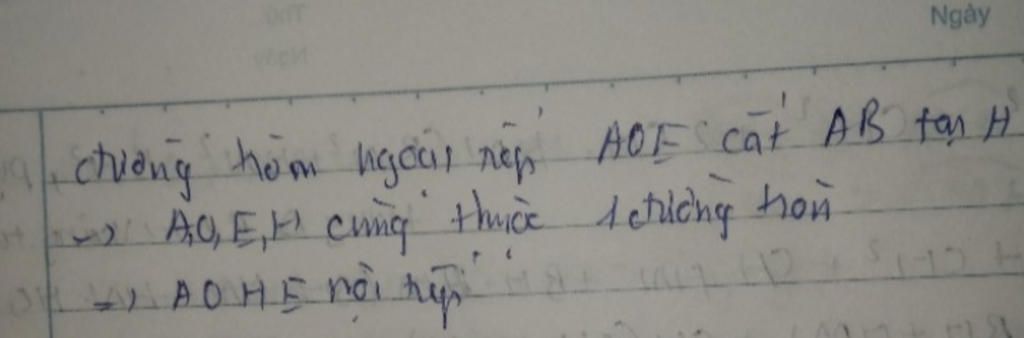 Ngày
đường tròn ngoại tiếp AOE cắt AB tại H
=> A,O,E,H cùng thuộc 1 đường tròn
=> AOHE nội tiếp